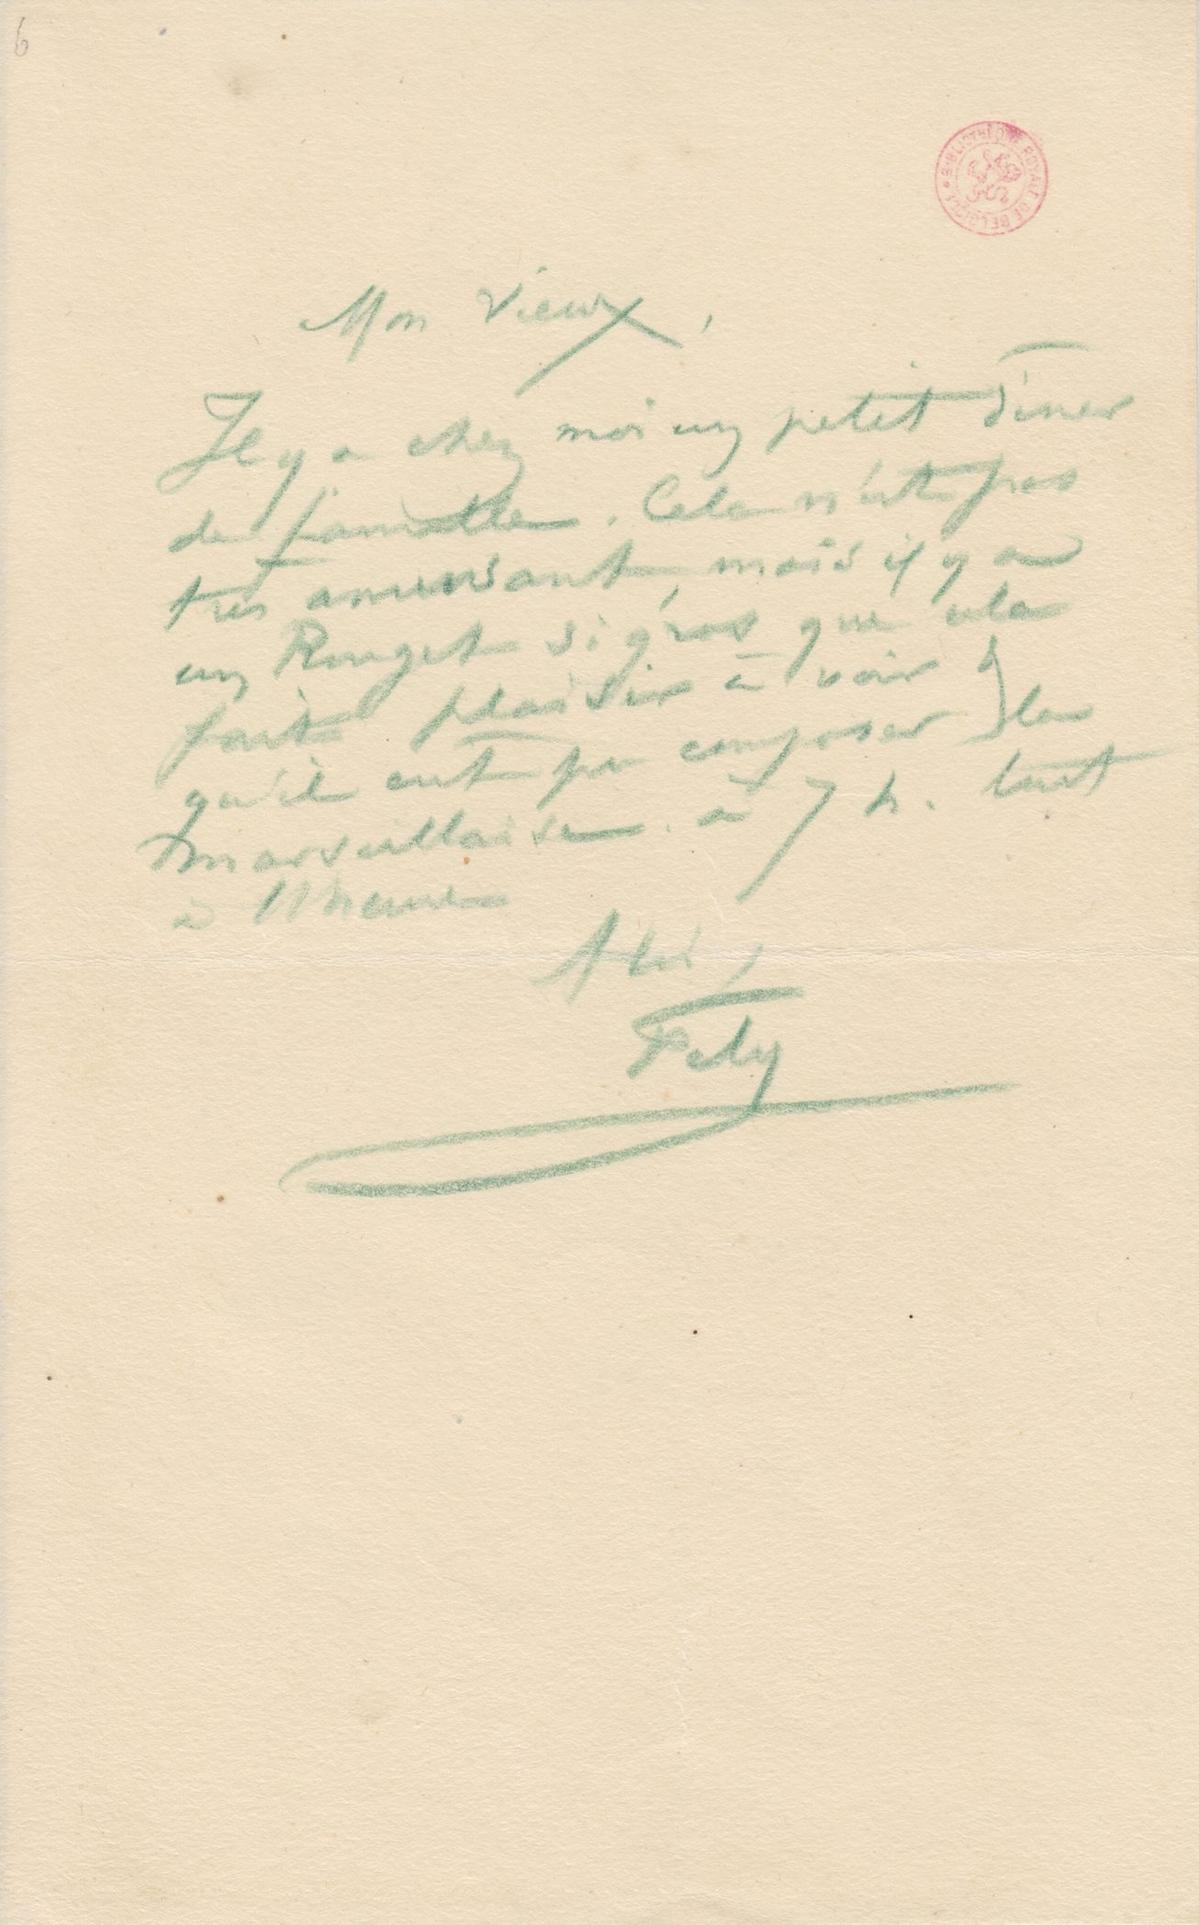 6
BIBLIOTHÈQUE ROYALE DE BELGIQUE
Mon Vieux,
Il y a chez moi un petit dîner
de famille. Cela n'est pas
très amusant, mais il y a
un Rouget si gros que cela
fait plaisir à voir &
qu'il eut pu composer la
Marseillaise. à 7 h. tout
à l'heure
À toi,
Fély